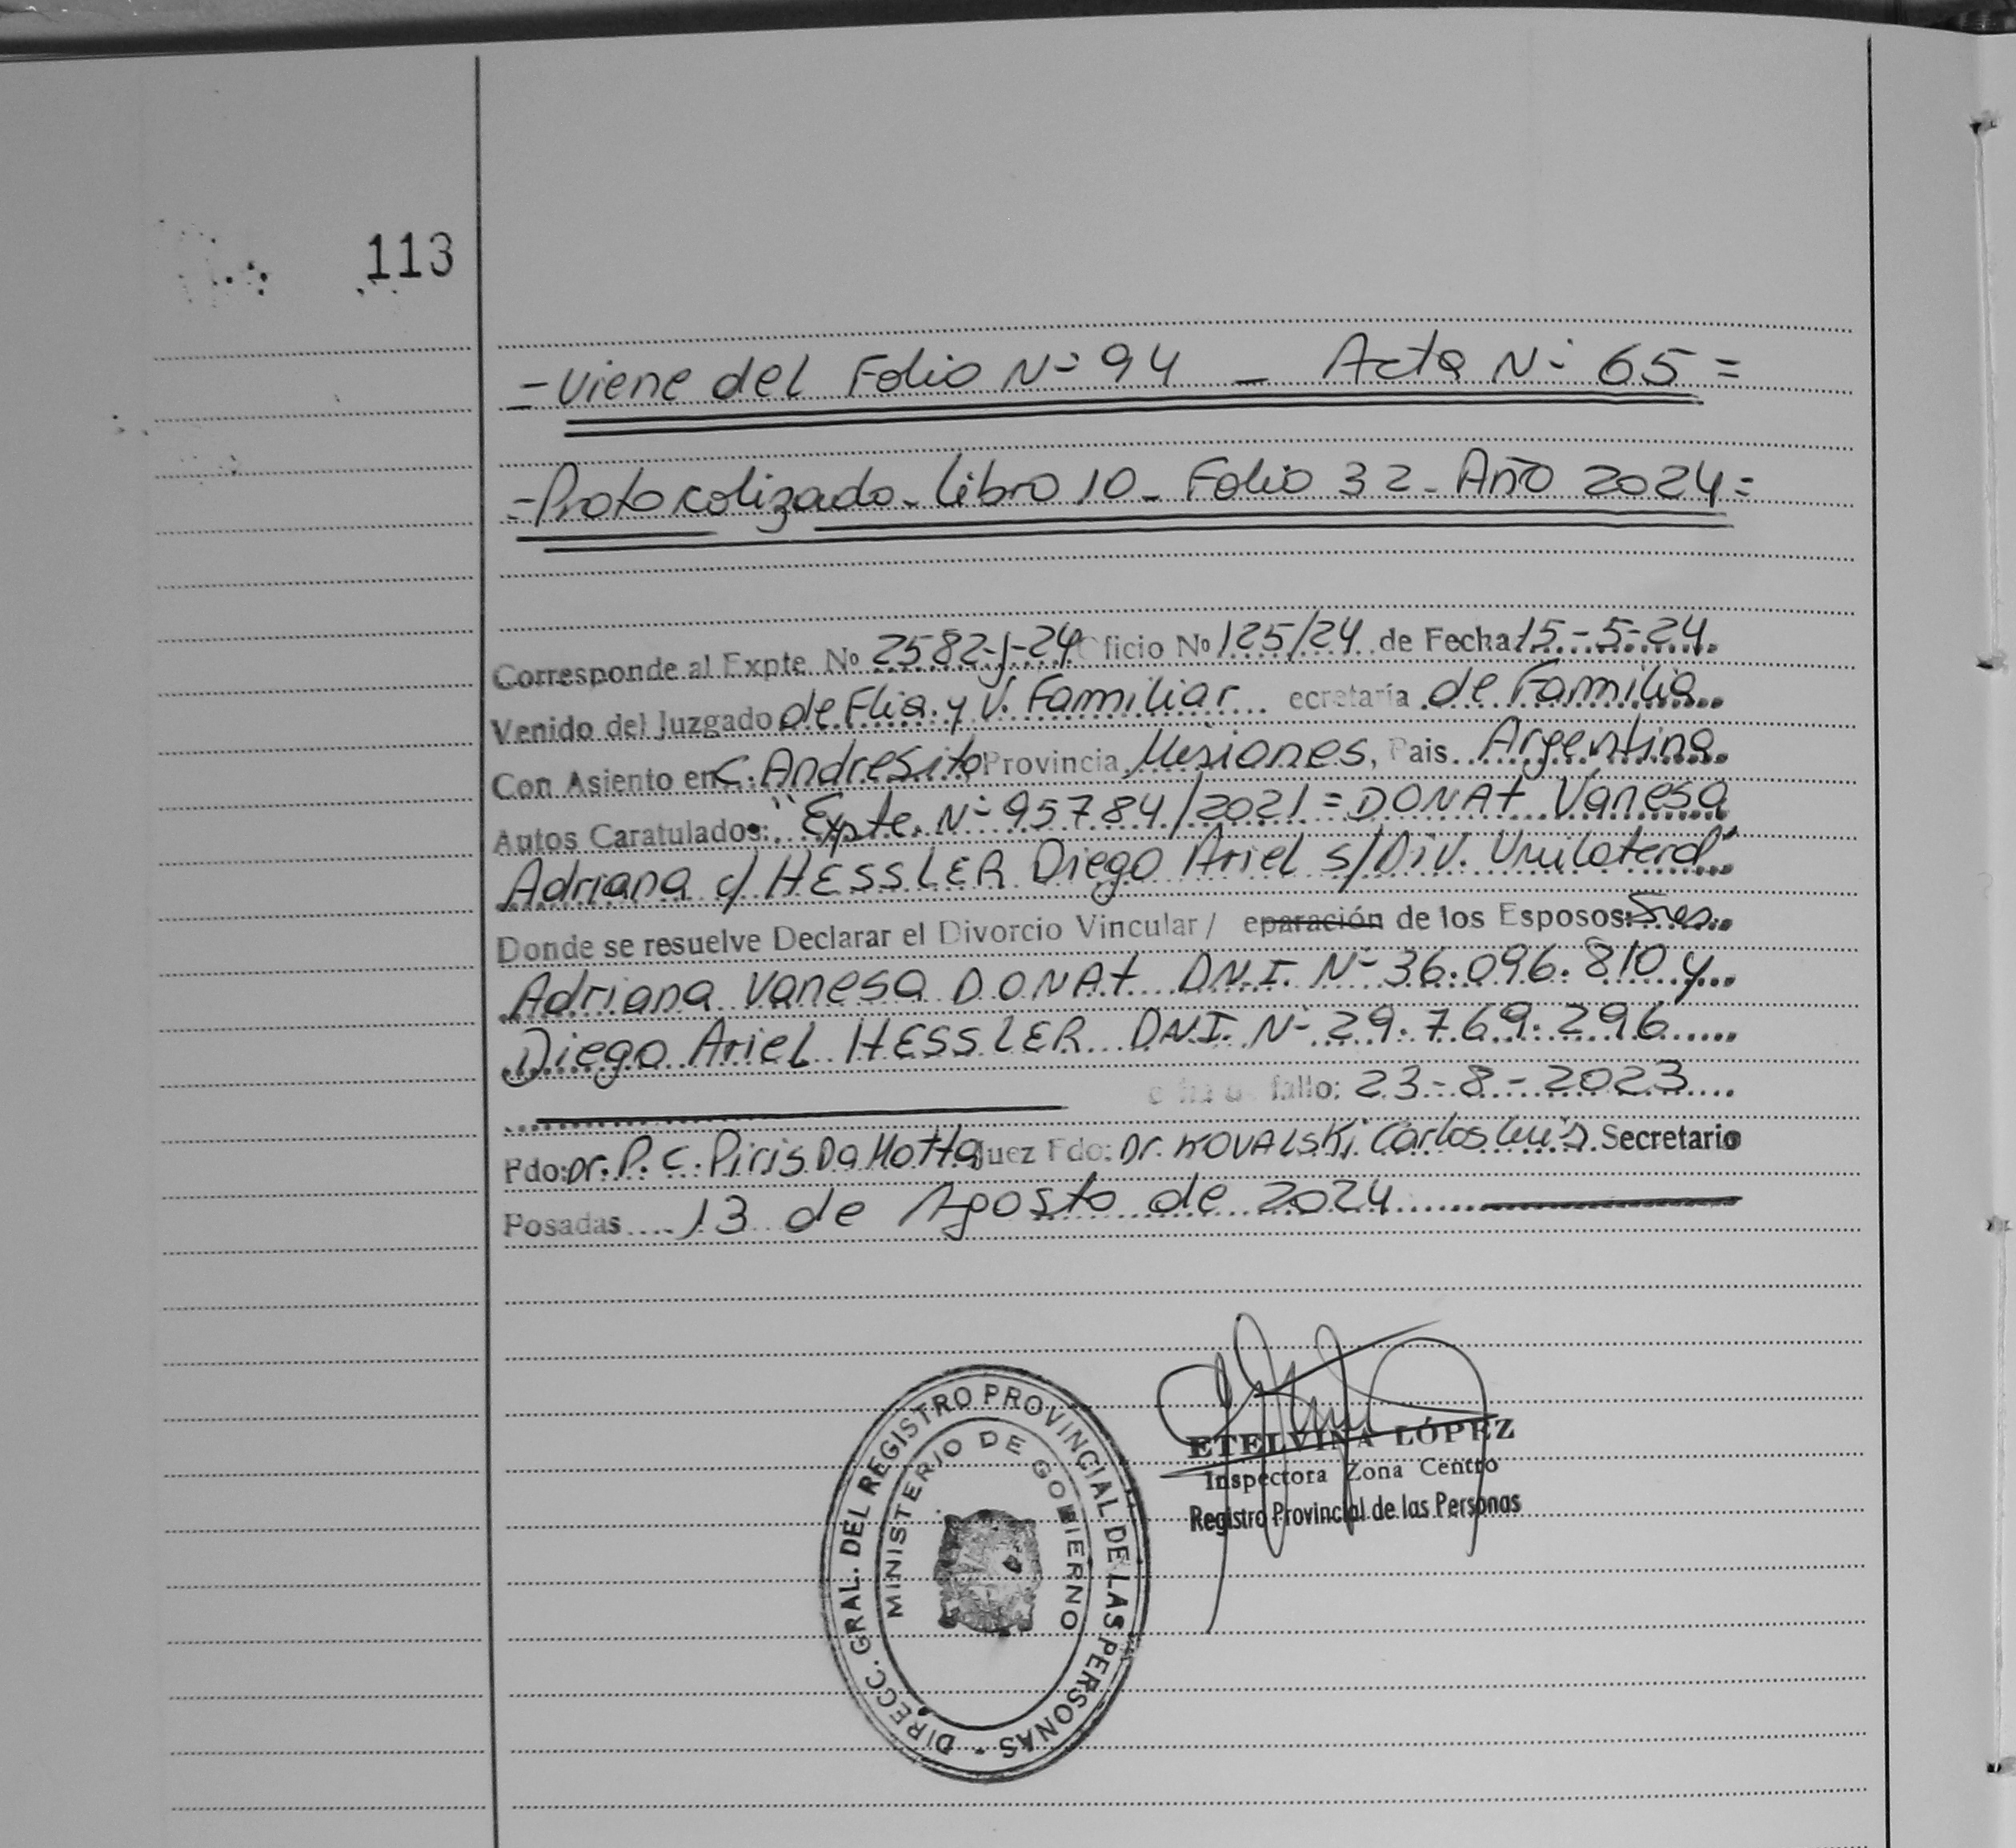 113
- Viene del Folio Nº 94 _ Acta Nº 65 =
- Protocolizado - Libro 10 - Folio 32 - Año 2024 =
Corresponde al Expte. Nº 2582-J-24 Oficio Nº 125/24 de Fecha 15-5-24.
Venido del Juzgado de Flia. y V. Familiar ecretaría de Familia
Con Asiento en C. Andresito Provincia Misiones, Pais Argentina
Autos Caratulados: "Expte. Nº 95784/2021 = DONAt Vanesa
Adriana c/ HESSLER Diego Ariel s/ Div. Unilateral"
Donde se resuelve Declarar el Divorcio Vincular / eparación de los Esposos: Sres.
Adriana Vanesa DONAt DN.I. Nº 36.096.810 y
Diego Ariel HESSLER DN.I. Nº 29.769.296
fallo: 23-8-2023
Fdo: Dr. P. C. Piris Da Motta Juez Fdo: Dr. KOVALSKi Carlos Luis Secretario
Posadas 13 de Agosto de 2024
ETELVINA LÓPEZ
Inspectora Zona Centro
Registro Provincial de las Personas
DIRECC. GRAL. DEL REGISTRO PROVINCIAL DE LAS PERSONAS
MINISTERIO DE GOBIERNO